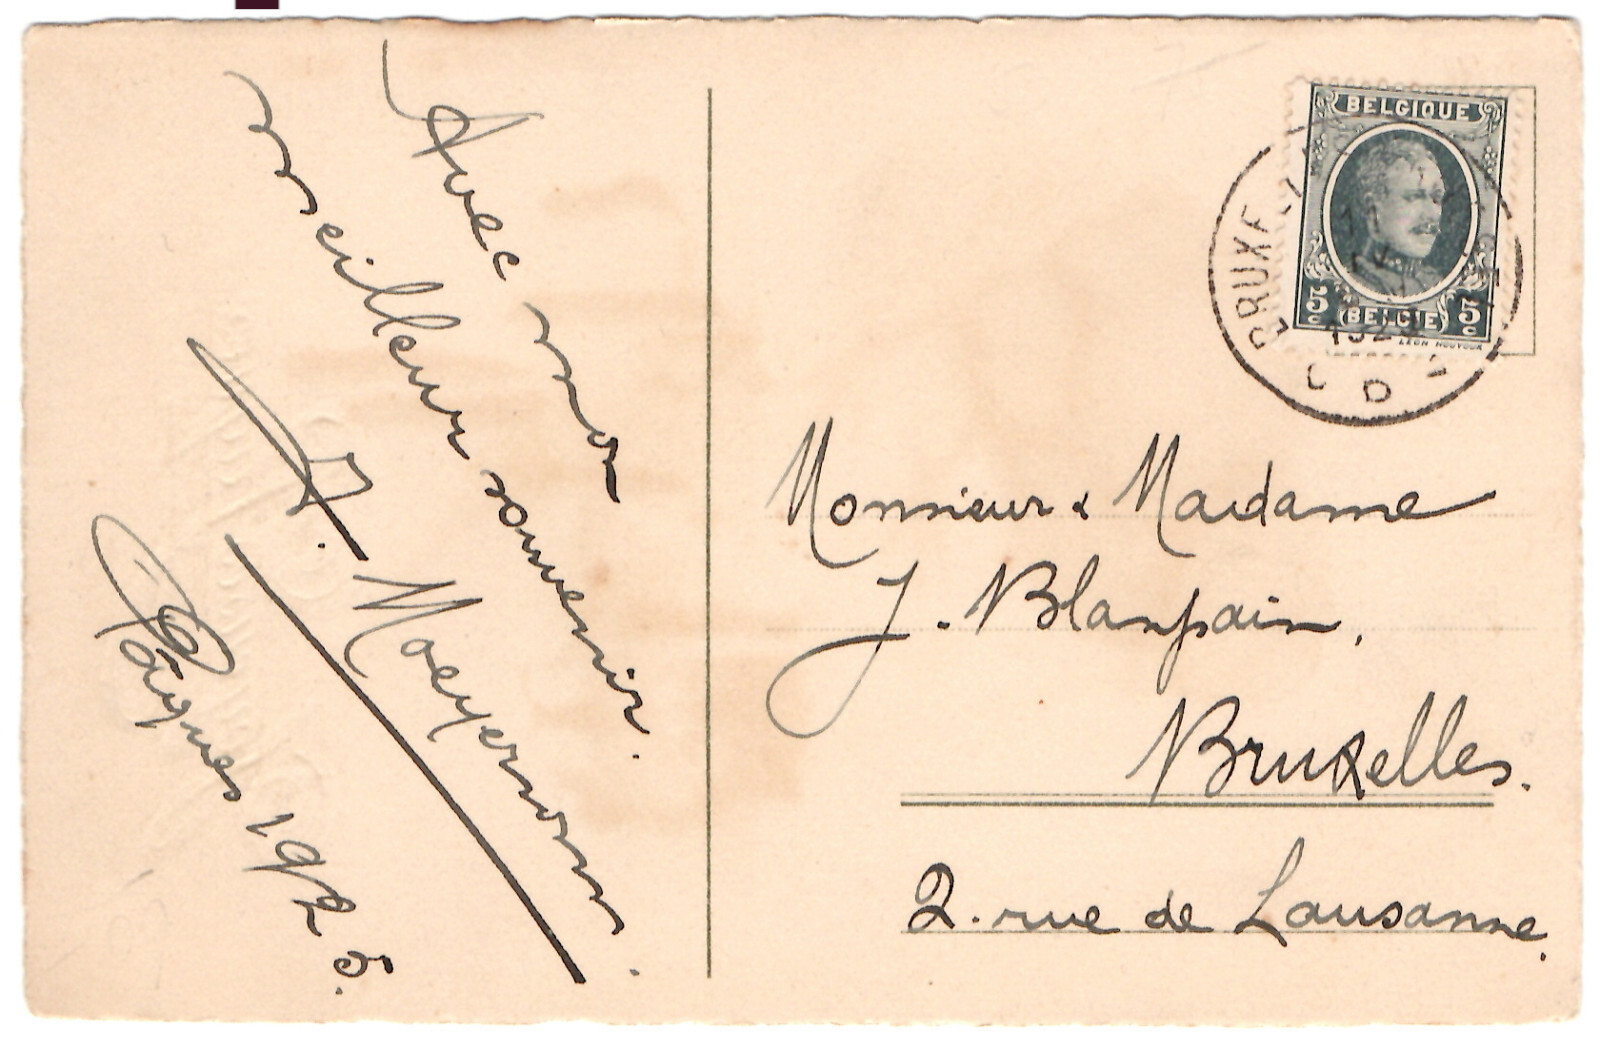 Avec mon
meilleur souvenir.
J. Moeyersons.
Pâques 1925.
BELGIQUE
5c BELGIË 5c
BRUXE
D
Monsieur & Madame
J. Blanpain,
Bruxelles.
2. rue de Lausanne.